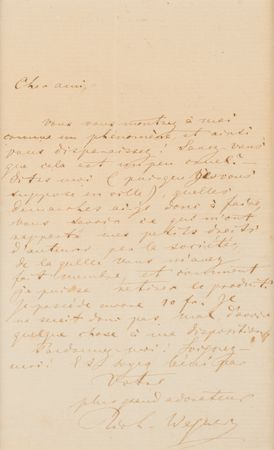 Cher ami,
Vous vous montrez à moi
comme un phénomène, et ainsi
vous disparaissez! Savez-vous
que cela est un peu cruel? –
Dites moi (puisque je vous
suppose en ville), quelles
démarches ai-je donc à faire,
pour savoir ce qui m'ont
rapporté mes petits droits
d'auteur par la société,
de laquelle vous m'avez
fait membre, et comment
je puisse retirer le produit?
Je possède encore 10 frs. Je
ne serait donc pas mal d'avoir
quelque chose à ma disposition.
Pardonnez-moi! Soignez-
moi! Et soyez béni par
Votre
plus grand adorateur
Rich. Wagner